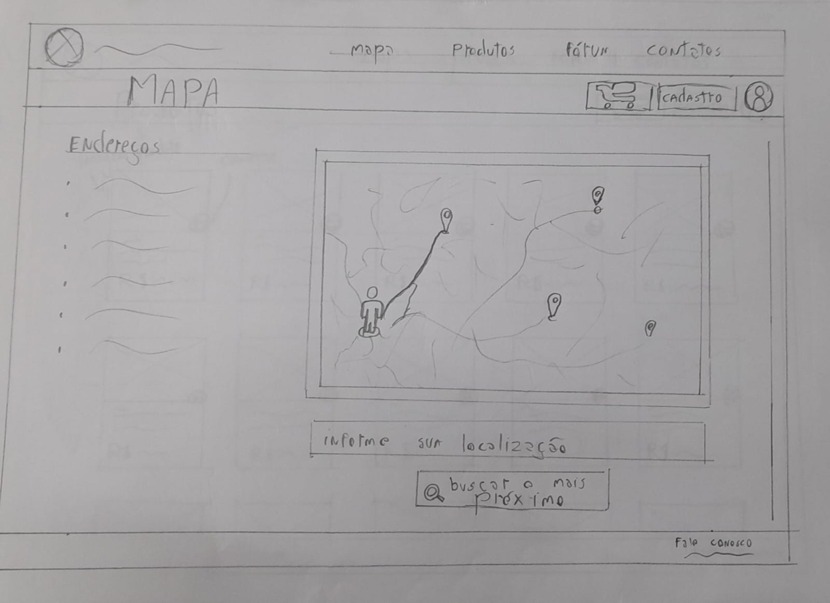 mapa Produtos fórum contatos
MAPA
CADASTRO
Endereços
informe sua localização
buscar o mais
próximo
Fale conosco